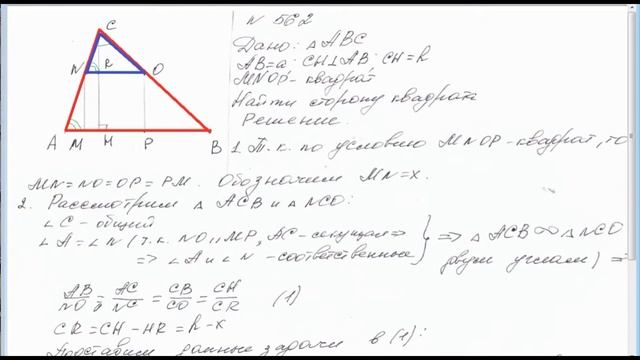 N 562
Дано: △ ABC
AB=a CH⊥AB CH=h
MNOP - квадрат
Найти сторону квадрата
Решение.
1. Т.к. по условию MNOP - квадрат, то
MN=NO=OP=PM. Обозначим MN=x.
2. Рассмотрим △ ACB и △ NCO:
∠C - общий
∠A=∠N (т.к. NO || MP, AC - секущая =>
=> ∠A и ∠N - соответственные
=> △ ACB ∞ △ NCO
двум углам) =>
AB/NO = AC/NC = CB/CO = CH/CR (1)
CR=CH-HR=h-x
Подставим данные задачи в (1):
C
N R O
A M H P B